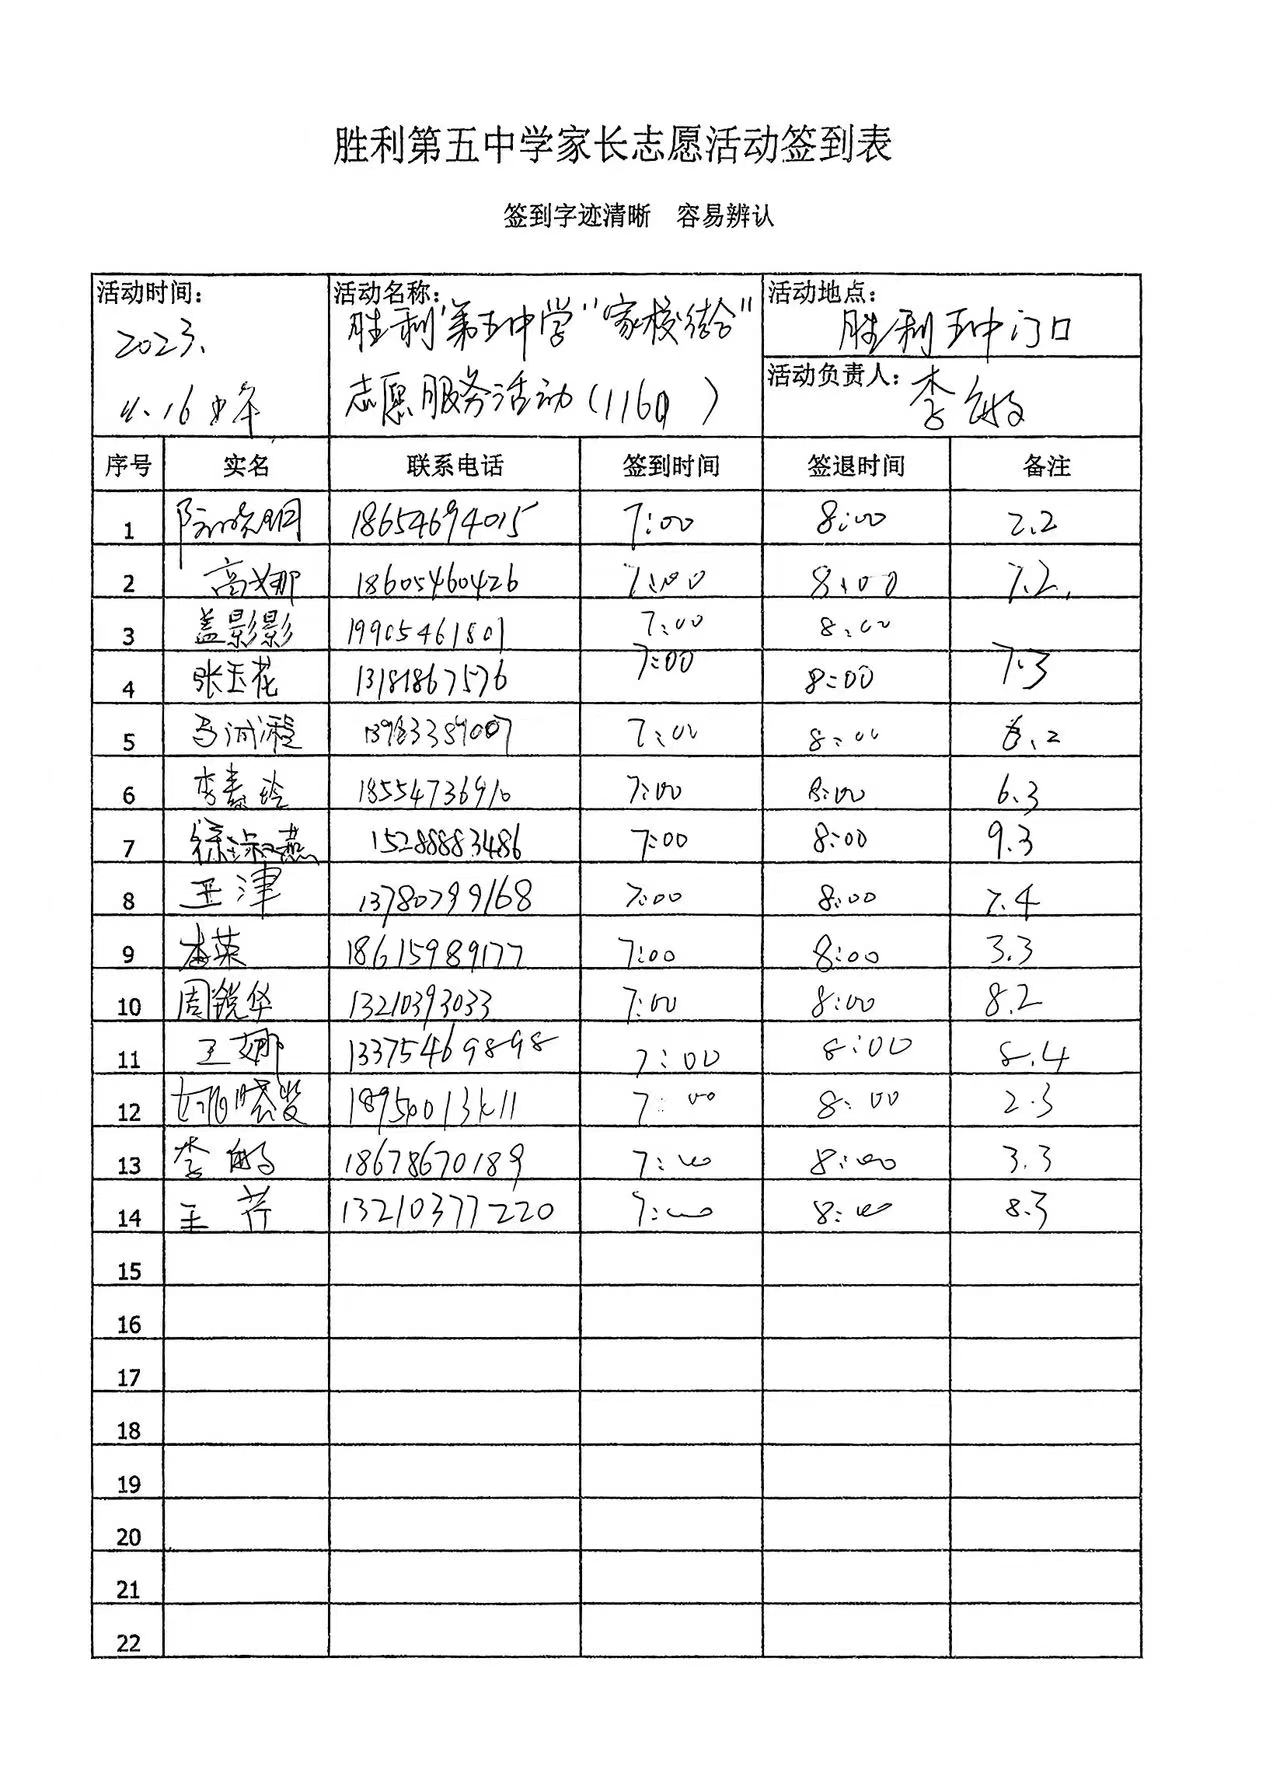 胜利第五中学家长志愿活动签到表
签到字迹清晰 容易辨认
活动时间: 2023.
活动名称: 胜利第五中学"家校结合"
志愿服务活动(1160)
活动地点: 胜利五中门口
活动负责人: 李敏
序号 实名 联系电话 签到时间 签退时间 备注
1 18654694015 7:00 8:00 2.2
2 高娜 18605460426 7:00 8:00 7.2.
3 盖影影 19905461801 7:00 8:00
4 张玉花 13181867576 7:00 8:00 7.3
5 7:00 8:00 6.2
6 李春玲 18554736910 7:00 8:00 6.3
7 徐淑燕 15288883486 7:00 8:00 9.3
8 王津 13780799168 7:00 8:00 7.4
9 18615989177 7:00 8:00 3.3
10 周锐华 13210393033 7:00 8:00 8.2
11 王娜 13375469898 7:00 8:00 8.4
12 7:00 8:00 2.3
13 李敏 18678670189 7:00 8:00 3.3
14 王芹 13210377220 7:00 8:00 8.3
15
16
17
18
19
20
21
22